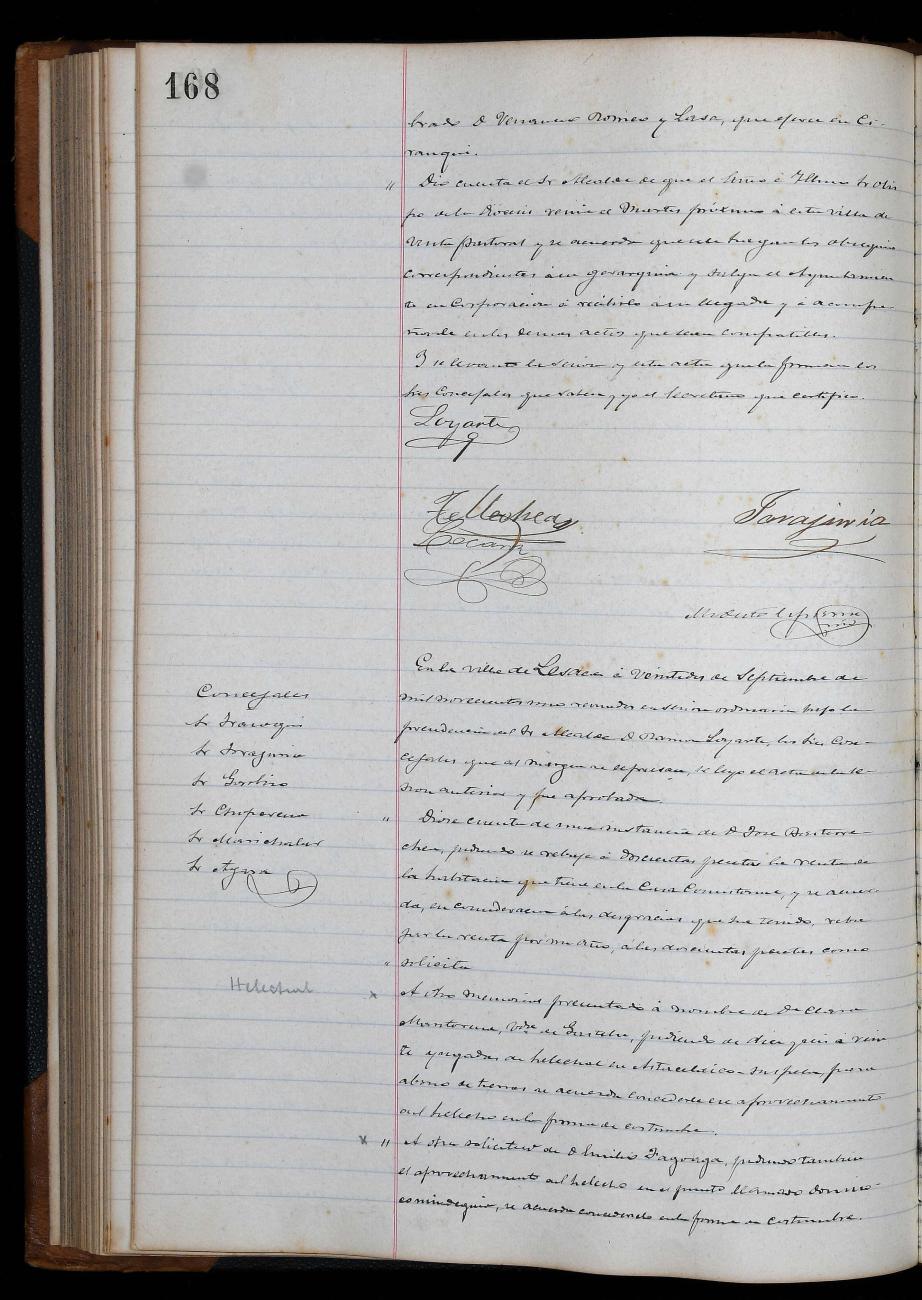 168
brado D Venancio Romeo y Lasa, que ejerce en Ci-
rauqui.
" Dio cuenta el Sr Alcalde de que el Excmo é Yllmo Sr Obis
po de la Diocesis viene el Martes próximo á esta villa de
Visita pastoral y se acuerda que se le hagan los obsequios
correspondientes á su gerarquia y salga el Ayuntamien
to en Corporacion á recibirle á su llegada y á acompa-
ñarle en los demas actos que sean compatibles.
Y se levantó la sesion y esta acta que la firman los
Sres Concejales que saben, y yo el Secretario que certifico.
Loyarte
Tellechea
Irazoqui
Modesto
En la villa de Lesaca á Veintidos de Septiembre de
mil novecientos uno reunidos en sesion ordinaria bajo la
presidencia del Sr Alcalde D Ramon Loyarte, los Sres Con-
cejales que al margen se espresan, se leyó el acta de la se-
sion anterior y fue aprobada.
Concejales
Sr Irazoqui
Sr
Sr
Sr
Sr Marichalar
Sr
" Diose cuenta de una instancia de D José
chea, pidiendo se rebaje á doscientas pesetas la renta de
la habitacion que tiene en la Casa Consistorial, y se acuer-
da, en consideracion á las desgracias que ha tenido, reba
jar la renta por un año, á las doscientas pesetas como
" solicita
Helechal
x A otro memorial presentado á nombre de Dª Clara
Vda de pidiendo de diez y seis á vein
te yugadas de helechal en para
abono de tierras se acuerda concederle el aprovechamiento
del helecho en la forma de costumbre.
x " A otra solicitud de D Emilio Fagoaga, pidiendo tambien
el aprovechamiento del helecho en el punto llamado
se acuerda concederselo en la forma de costumbre.